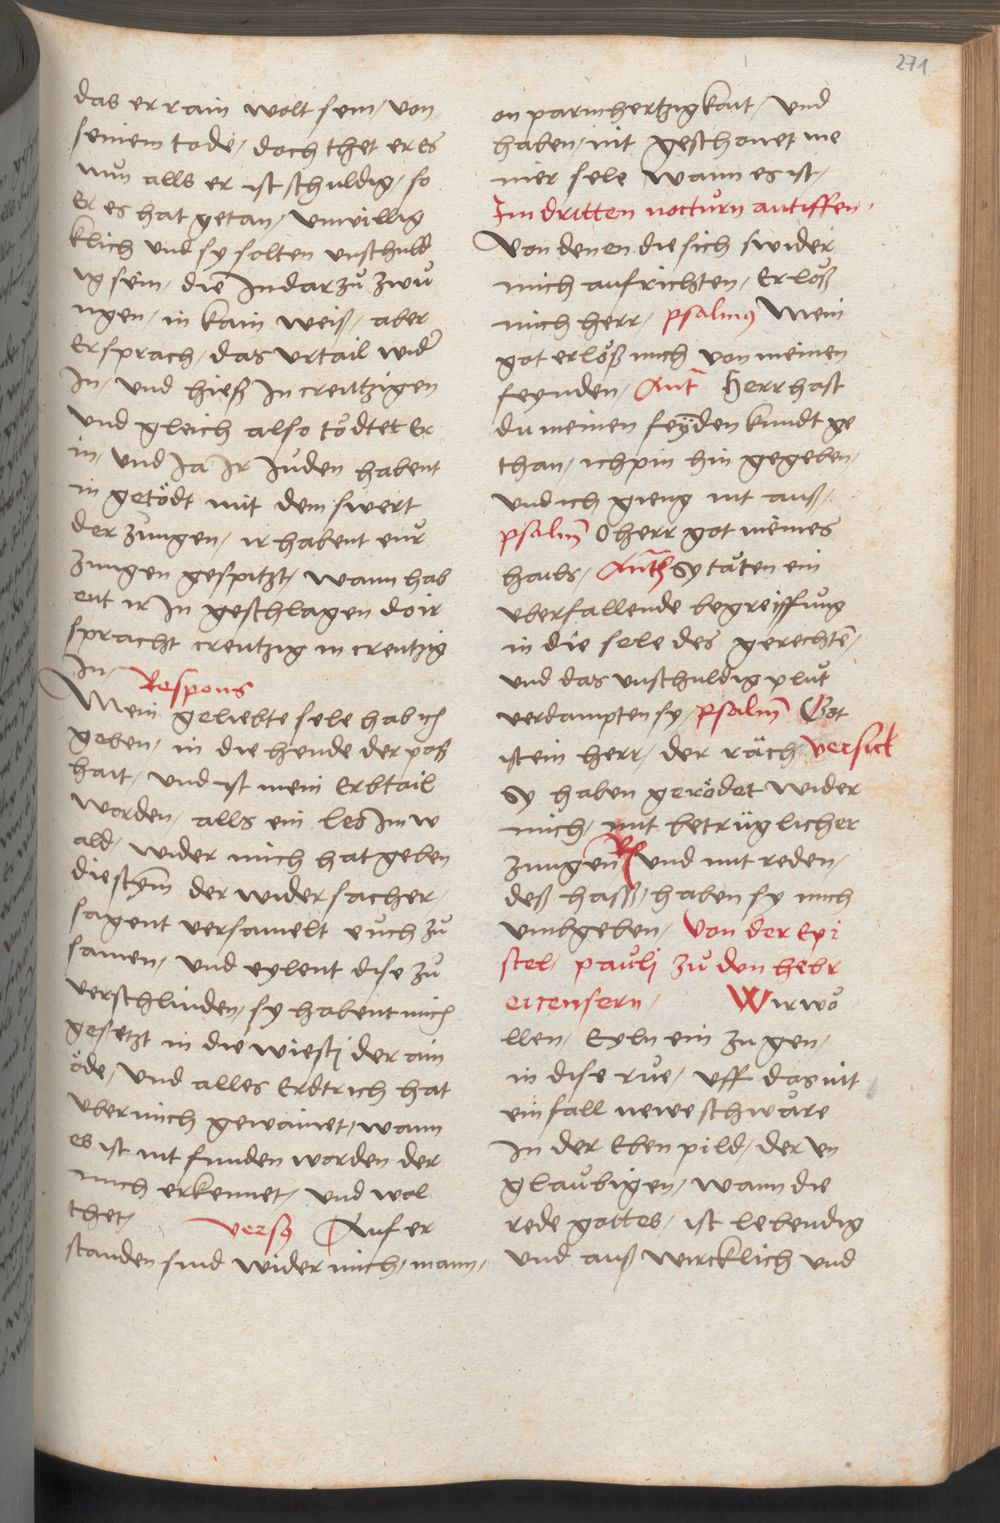 271
das er rain wolt sein / von
seinem tode / doch thet er es
nun alls er ist schuldig / so
Er es hat getan / unwillig
klich und sy solten unschuld
ig sein / die In darzů zwů
ngen / in kain weiß / aber
Er sprach / das urtail wider
In / und hieß In creutzigen
und gleich also tödtet Er
in / und Ja Ir Juden habent
in getödt mit dem swert
der zungen / ir habent eůr
zungen gespitzt / wann hab
ent ir In geschlagen do ir
spracht creutzig in creutzig
In / Respons
Mein geliebte sele hab ich
geben / in die hende der poß
hait / und ist mein Erbtail
worden / alls ein leo Im w
ald / wider mich hat geben
die stem̄ der widersacher /
sagent versamelt euch zů
samen / und eylent dise zů
verschlinden / sy habent mich
gesetzt in die wiesti der ain
öde / und alles Erdtrich hat
uber mich gewainet / wann
es ist nit funden worden der
mich erkennet / und wol
thet / versꝯ Auf er
standen sind wider mich / mann /
on parmhertzigkait / und
haben / nit geschonet me
iner sele wann es ist /
Im dritten nocturn antiffen /
Von denen die sich wider
mich aufrichten / Erlöß
mich herr / psalmꝯ Mein
got erlöß mich von meinen
feynden / Ant̄ Herr hast
du meinen feyn̄den kundt ge
than / ich pin hin gegeben /
und ich gieng nit auß /
psalm̄ O herr got meines
hails / Anth̄ Sy täten ein
uberfallende begreiffung
in die sele des gerechten̄ /
und das unschuldig plůt
verdampten sy / psalm̄ Got
ist ein herr / der räch / versickel
Sy haben gerödet wider
mich / mit betrüglicher
zungen̄ R̸ und mit reden /
deß hasß / haben sy mich
umbgeben / Von der Epi
stel / pauli zů den hebr
eicensern / Wir wö
llen / Eyln ein zu gen /
in dise rue / uff das nit
ein fall newe schwäre
In der Ebenpild / der un
glaubigen / wann die
rede gottes / ist lebendig
und auß wircklich und